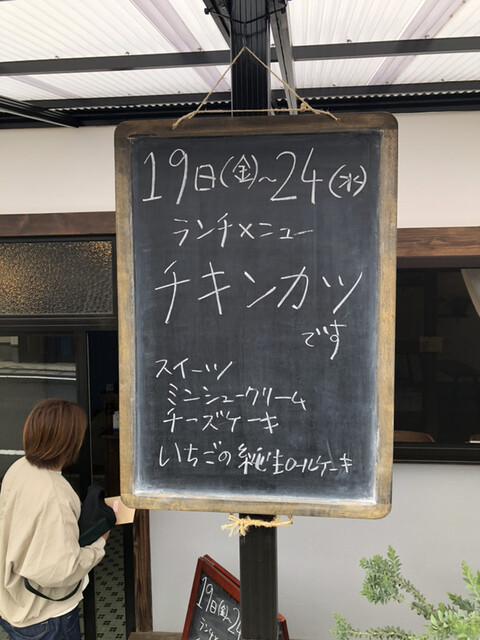 19日(金)~24(水)
ランチメニュー
チキンカツ
です
スイーツ
ミンシュークリーム
チーズケーキ
いちごの純生ロールケーキ
19日(金)~2
ランチ